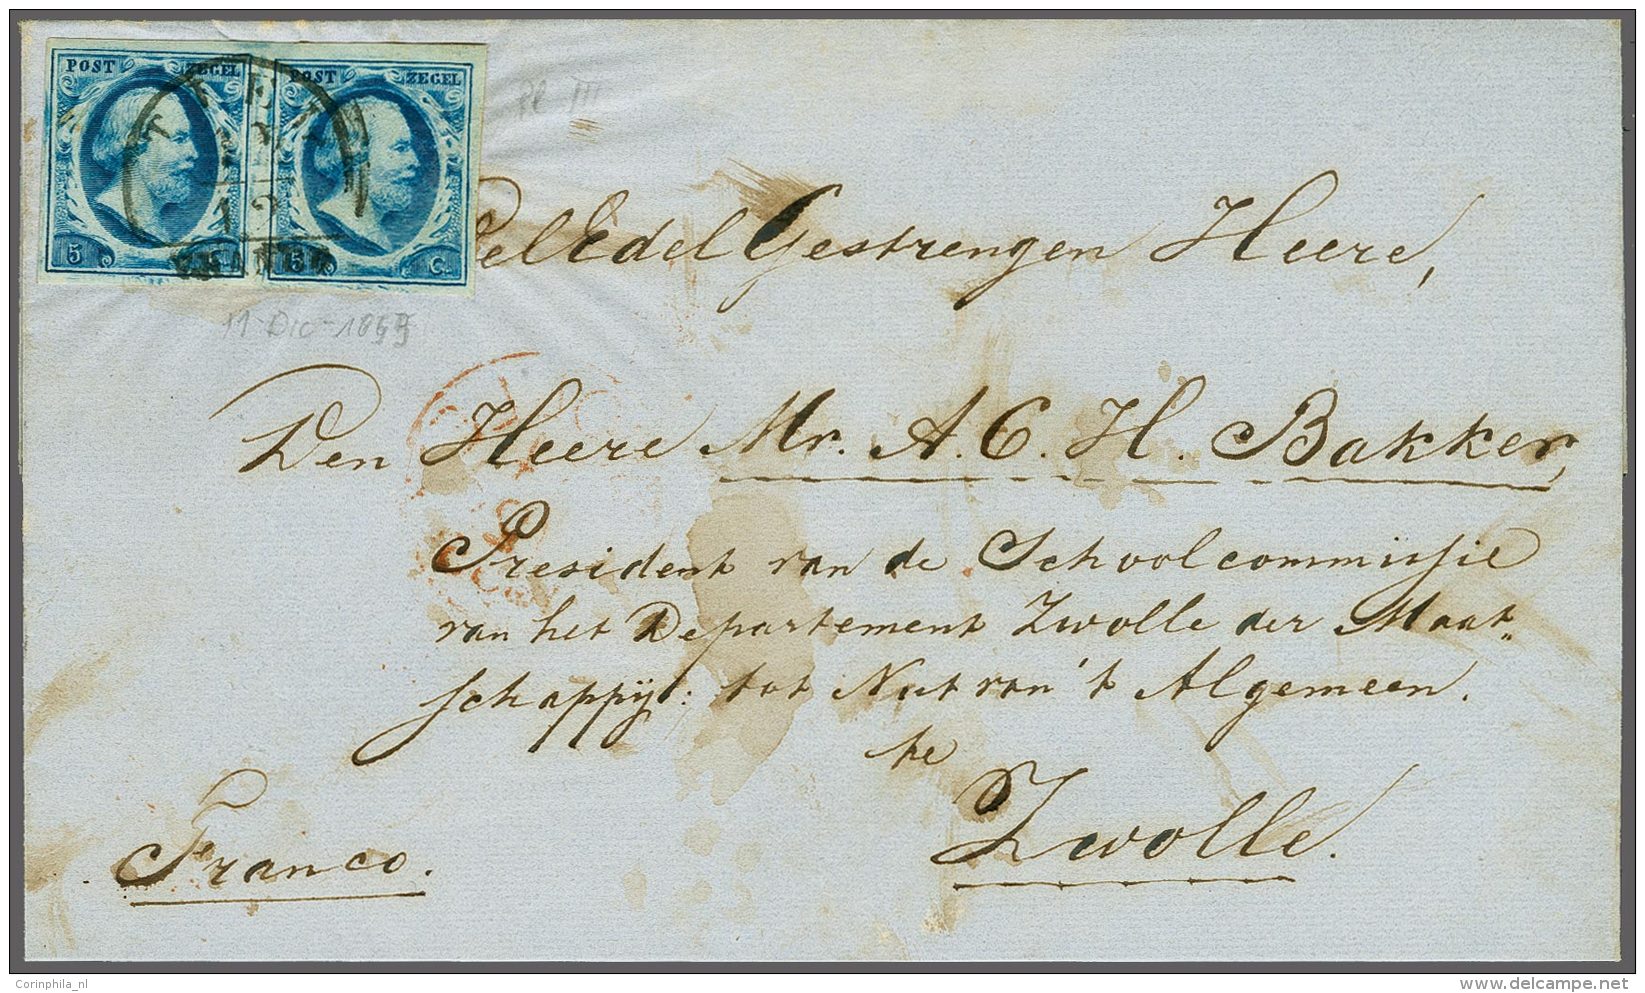 POST ZEGEL POST ZEGEL
5 5 C.
FRANCO
Pl III
11-Dic-1855
WelEdelGestrengen Heere,
Den Heere Mr. A. C. H. Bakker,
President van de Schoolcommissie
van het Departement Zwolle der Maat„
schappij: tot Nut van 't Algemeen.
te
Zwolle.
Franco.
Corinphila_nl
delcampe.net